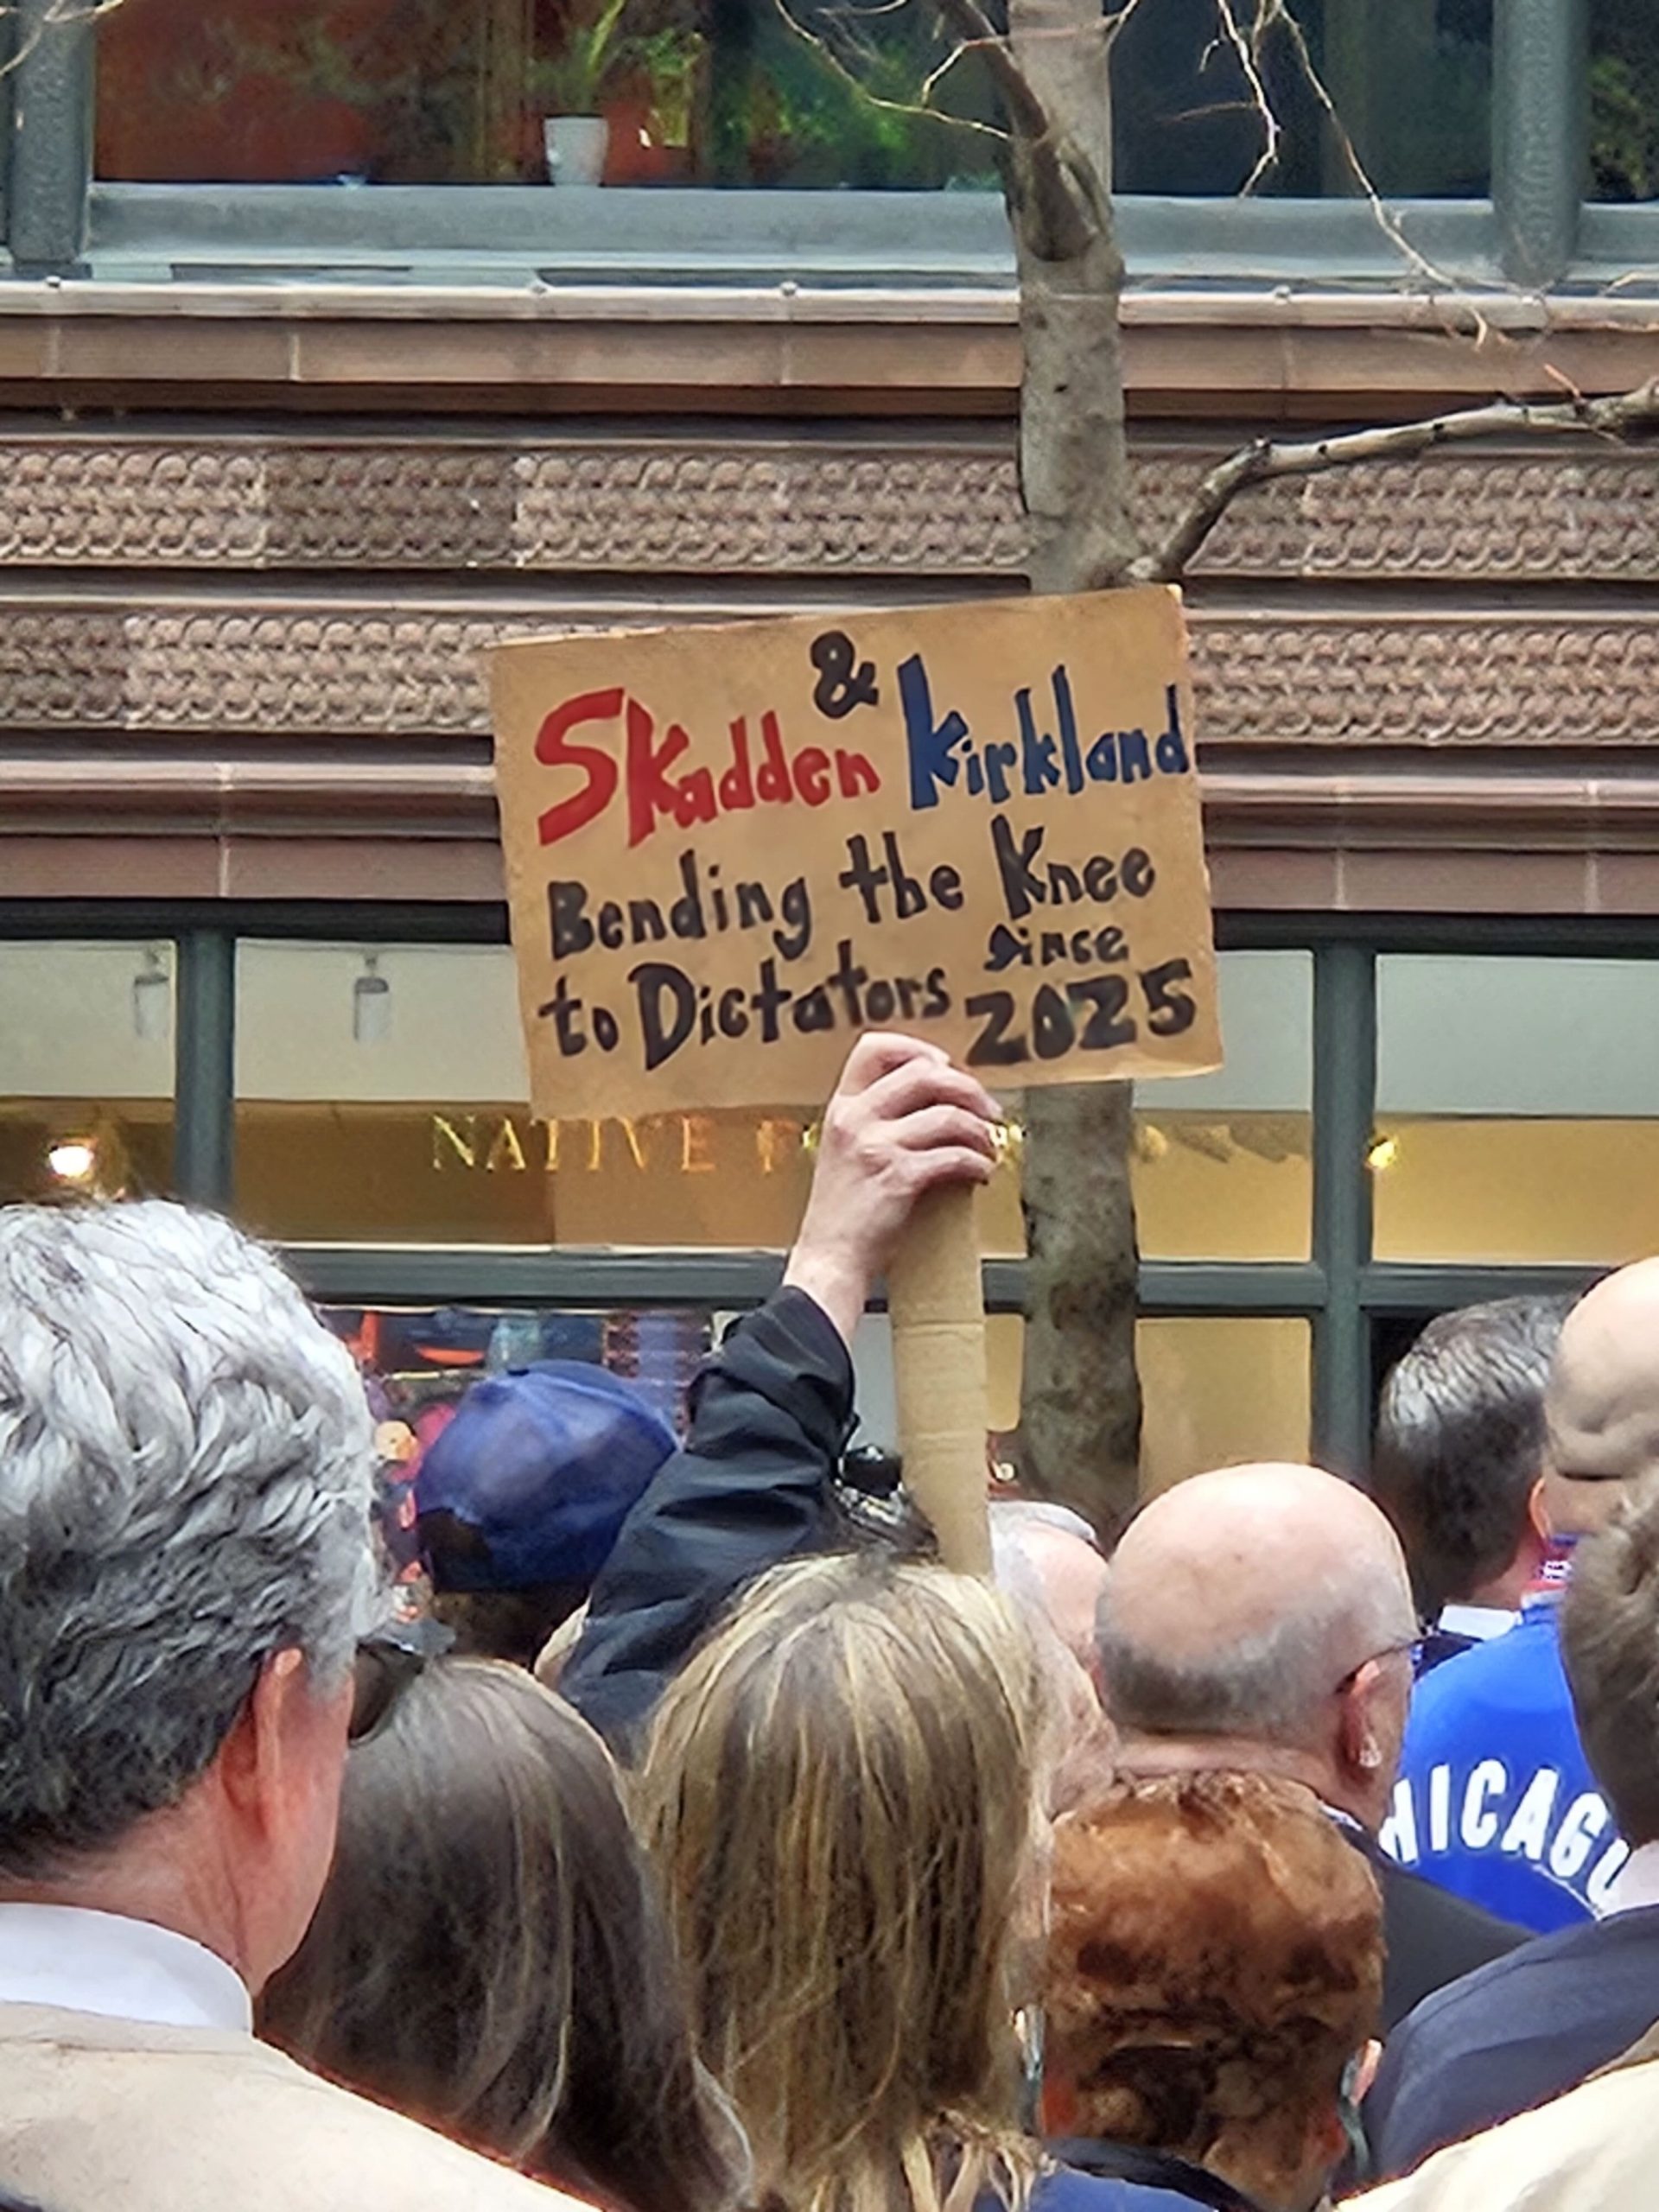 &
Skadden Kirkland
Bending the Knee
to Dictators since
2025
NATIVE
HICAGO